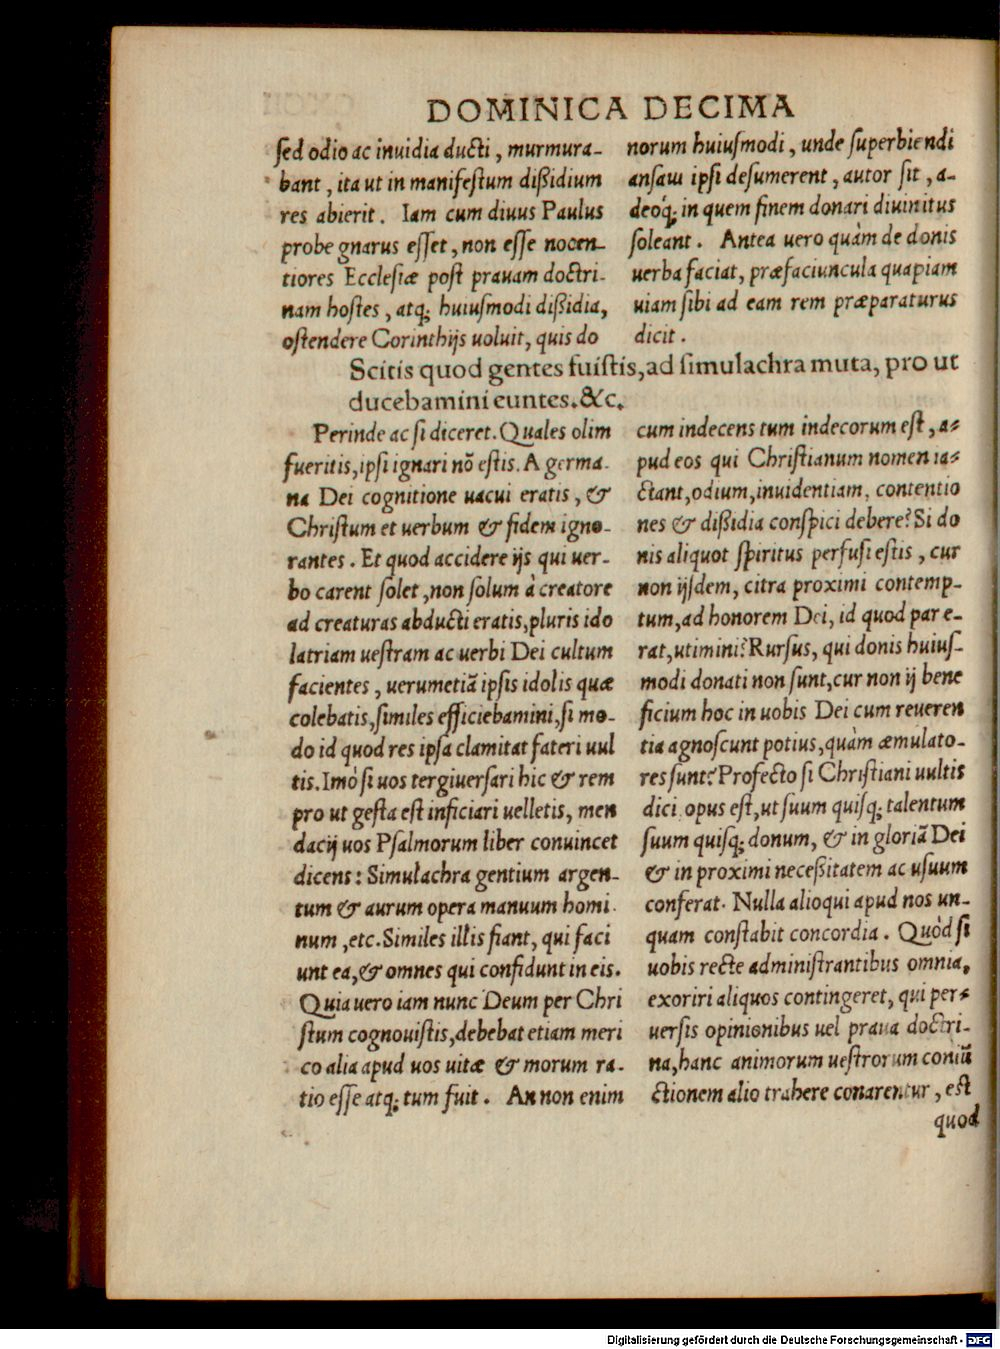 DOMINICA DECIMA
sed odio ac inuidia ducti, murmura-
bant, ita ut in manifestum dißidium
res abierit. Iam cum diuus Paulus
probe gnarus esset, non esse nocen-
tiores Ecclesiæ post prauam doctri-
nam hostes, atq; huiusmodi dißidia,
ostendere Corinthijs uoluit, quis do
norum huiusmodi, unde superbiendi
ansam ipsi desumerent, autor sit, a-
deóq; in quem finem donari diuinitus
soleant. Antea uero quàm de donis
uerba faciat, præfaciuncula quapiam
uiam sibi ad eam rem præparaturus
dicit.
Scitis quod gentes fuistis, ad simulachra muta, pro ut
ducebamini euntes. &c.
Perinde ac si diceret. Quales olim
fueritis, ipsi ignari nõ estis. A germa-
na Dei cognitione uacui eratis, &
Christum et uerbum & fidem igno-
rantes. Et quod accidere ijs qui uer-
bo carent solet, non solum à creatore
ad creaturas abducti eratis, pluris ido
latriam uestram ac uerbi Dei cultum
facientes, uerumetiã ipsis idolis quæ
colebatis, similes efficiebamini, si mo-
do id quod res ipsa clamitat fateri uul
tis. Imò si uos tergiuersari hic & rem
pro ut gesta est inficiari uelletis, men
dacij uos Psalmorum liber conuincet
dicens: Simulachra gentium argen-
tum & aurum opera manuum homi
num, etc. Similes illis fiant, qui faci
unt ea, & omnes qui confidunt in eis.
Quia uero iam nunc Deum per Chri
stum cognouistis, debebat etiam meri
co alia apud uos uitæ & morum ra-
tio esse atq; tum fuit. An non enim
cum indecens tum indecorum est, a-
pud eos qui Christianum nomen ia-
ctant, odium, inuidentiam, contentio
nes & dißidia conspici debere? Si do
nis aliquot spiritus perfusi estis, cur
non ijsdem, citra proximi contemp-
tum, ad honorem Dei, id quod par e-
rat, utimini? Rursus, qui donis huius-
modi donati non sunt, cur non ij bene
ficium hoc in uobis Dei cum reueren
tia agnoscunt potius, quàm æmulato-
res sunt? Profecto si Christiani uultis
dici opus est, ut suum quisq; talentum
suum quisq; donum, & in gloriã Dei
& in proximi neceßitatem ac usuum
conferat. Nulla alioqui apud nos un-
quam constabit concordia. Quòd si
uobis recte administrantibus omnia,
exoriri aliquos contingeret, qui per-
uersis opinionibus uel praua doctri-
na, hanc animorum uestrorum coniũ
ctionem alio trahere conarentur, est
quod
Digitalisierung gefördert durch die Deutsche Forschungsgemeinschaft - DFG